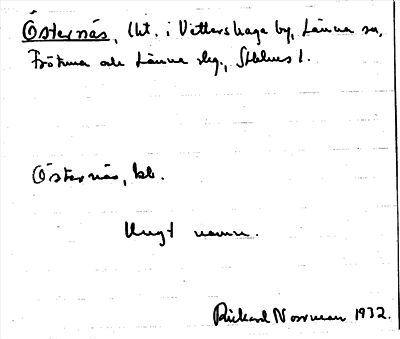 Östernäs, lht. i Vettershaga by, Länna sn,
Frötuna och Länna slg., Sthlms l.
Östernäs, bb.
Ungt namn.
Rickard Norrman 1932.